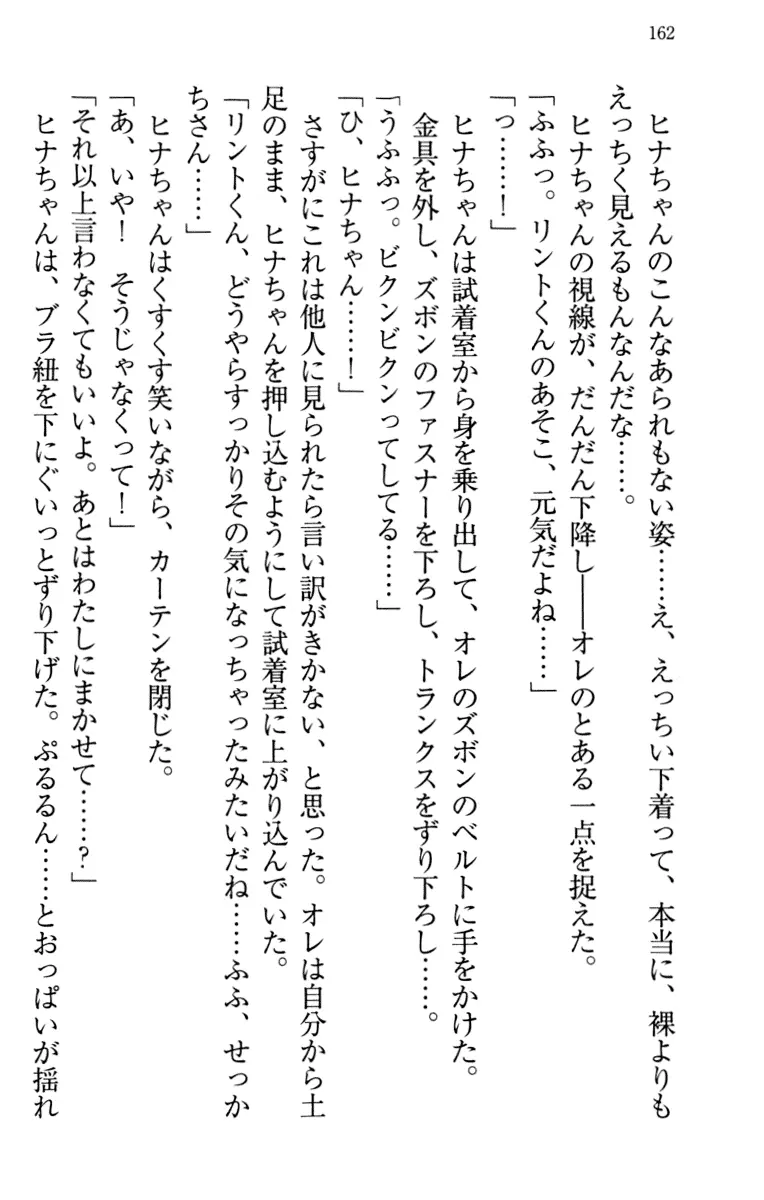 162
ヒナちゃんのこんなあられもない姿……え、えっちい下着って、本当に、裸よりも
えっちく見えるもんなんだな……。
ヒナちゃんの視線が、だんだん下降し――オレのとある一点を捉えた。
「ふふっ。リントくんのあそこ、元気だよね……」
「っ……！」
ヒナちゃんは試着室から身を乗り出して、オレのズボンのベルトに手をかけた。
金具を外し、ズボンのファスナーを下ろし、トランクスをずり下ろし……。
「うふふっ。ビクンビクンってしてる……」
「ひ、ヒナちゃん……！」
さすがにこれは他人に見られたら言い訳がきかない、と思った。オレは自分から土
足のまま、ヒナちゃんを押し込むようにして試着室に上がり込んでいた。
「リントくん、どうやらすっかりその気になっちゃったみたいだね……ふふ、せっか
ちさん……」
ヒナちゃんはくすくす笑いながら、カーテンを閉じた。
「あ、いや！　そうじゃなくって！」
「それ以上言わなくてもいいよ。あとはわたしにまかせて……？」
ヒナちゃんは、ブラ紐を下にぐいっとずり下げた。ぷるるん……とおっぱいが揺れ